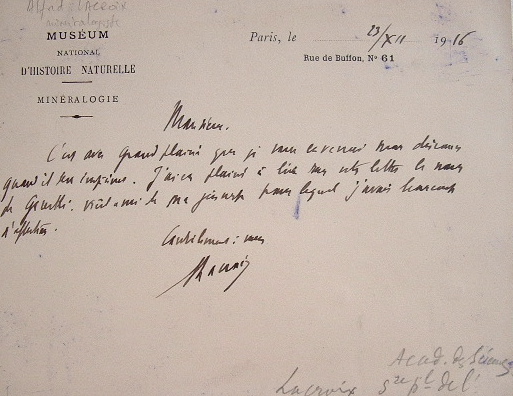 Alfred LACROIX
minéralogiste
MUSÉUM
NATIONAL
D'HISTOIRE NATURELLE
MINÉRALOGIE
Paris, le 23/XII 1916
Rue de Buffon, N° 61
Monsieur,
C'est avec grand plaisir que je vous enverrai mon discours
quand il sera imprimé. J'ai eu plaisir à lire sur votre lettre le nom
de vieil ami de ma jeunesse pour lequel j'avais beaucoup
d'affection.
Cordialement à vous
ALacroix
Acad. des Sciences
Lacroix Sre pl de l'